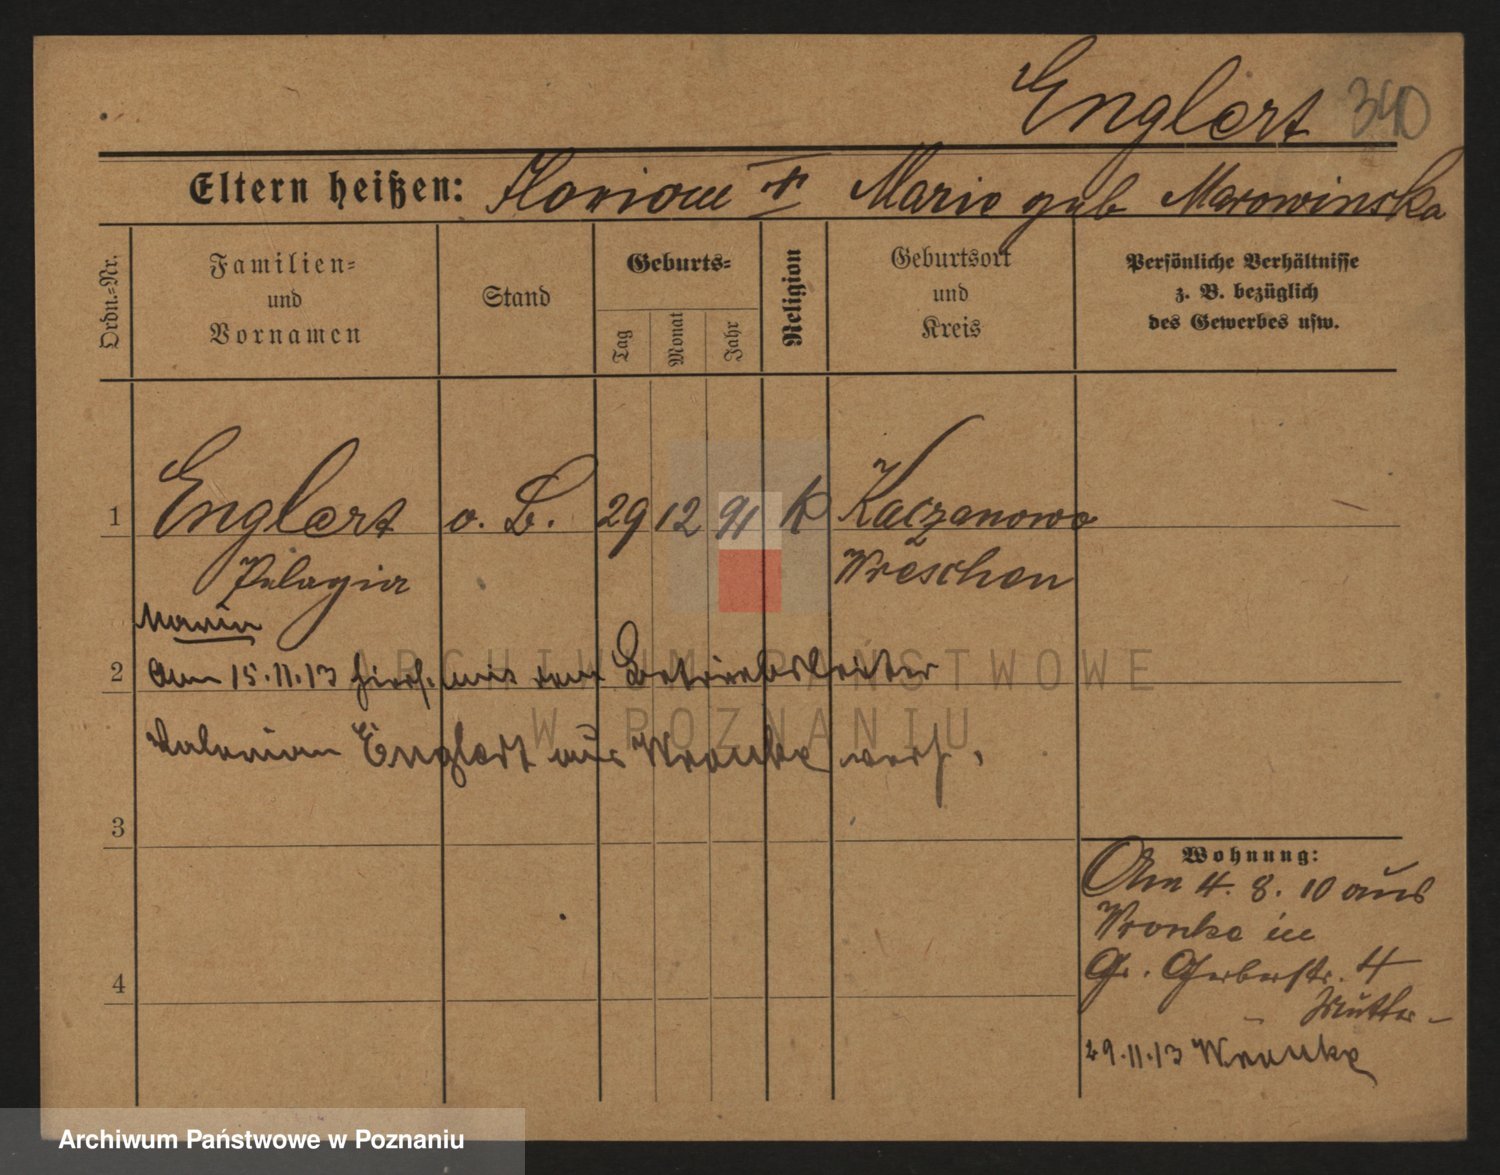 Englert 340
Eltern heißen: Florian + Marie geb Marowinska
Ordn.=Nr.
Familien=
und
Vornamen
Stand
Geburts=
Tag
Monat
Jahr
Religion
Geburtsort
und
Kreis
Persönliche Verhältnisse
z. B. bezüglich
des Gewerbes usw.
1 Englert o. B. 29 12 91 K Kaczanowo
Pelagia Wreschen
Maria
2 Am 15.11.13 hier mit dem Betriebsleiter
Valerian Englert aus Wronke verh.
3
4
Wohnung:
Am 4. 8. 10 aus
Wronke in
Gr. Gerberstr. 4
Mutter -
29.11.13 Wronke
ARCHIWUM PAŃSTWOWE
W POZNANIU
Archiwum Państwowe w Poznaniu